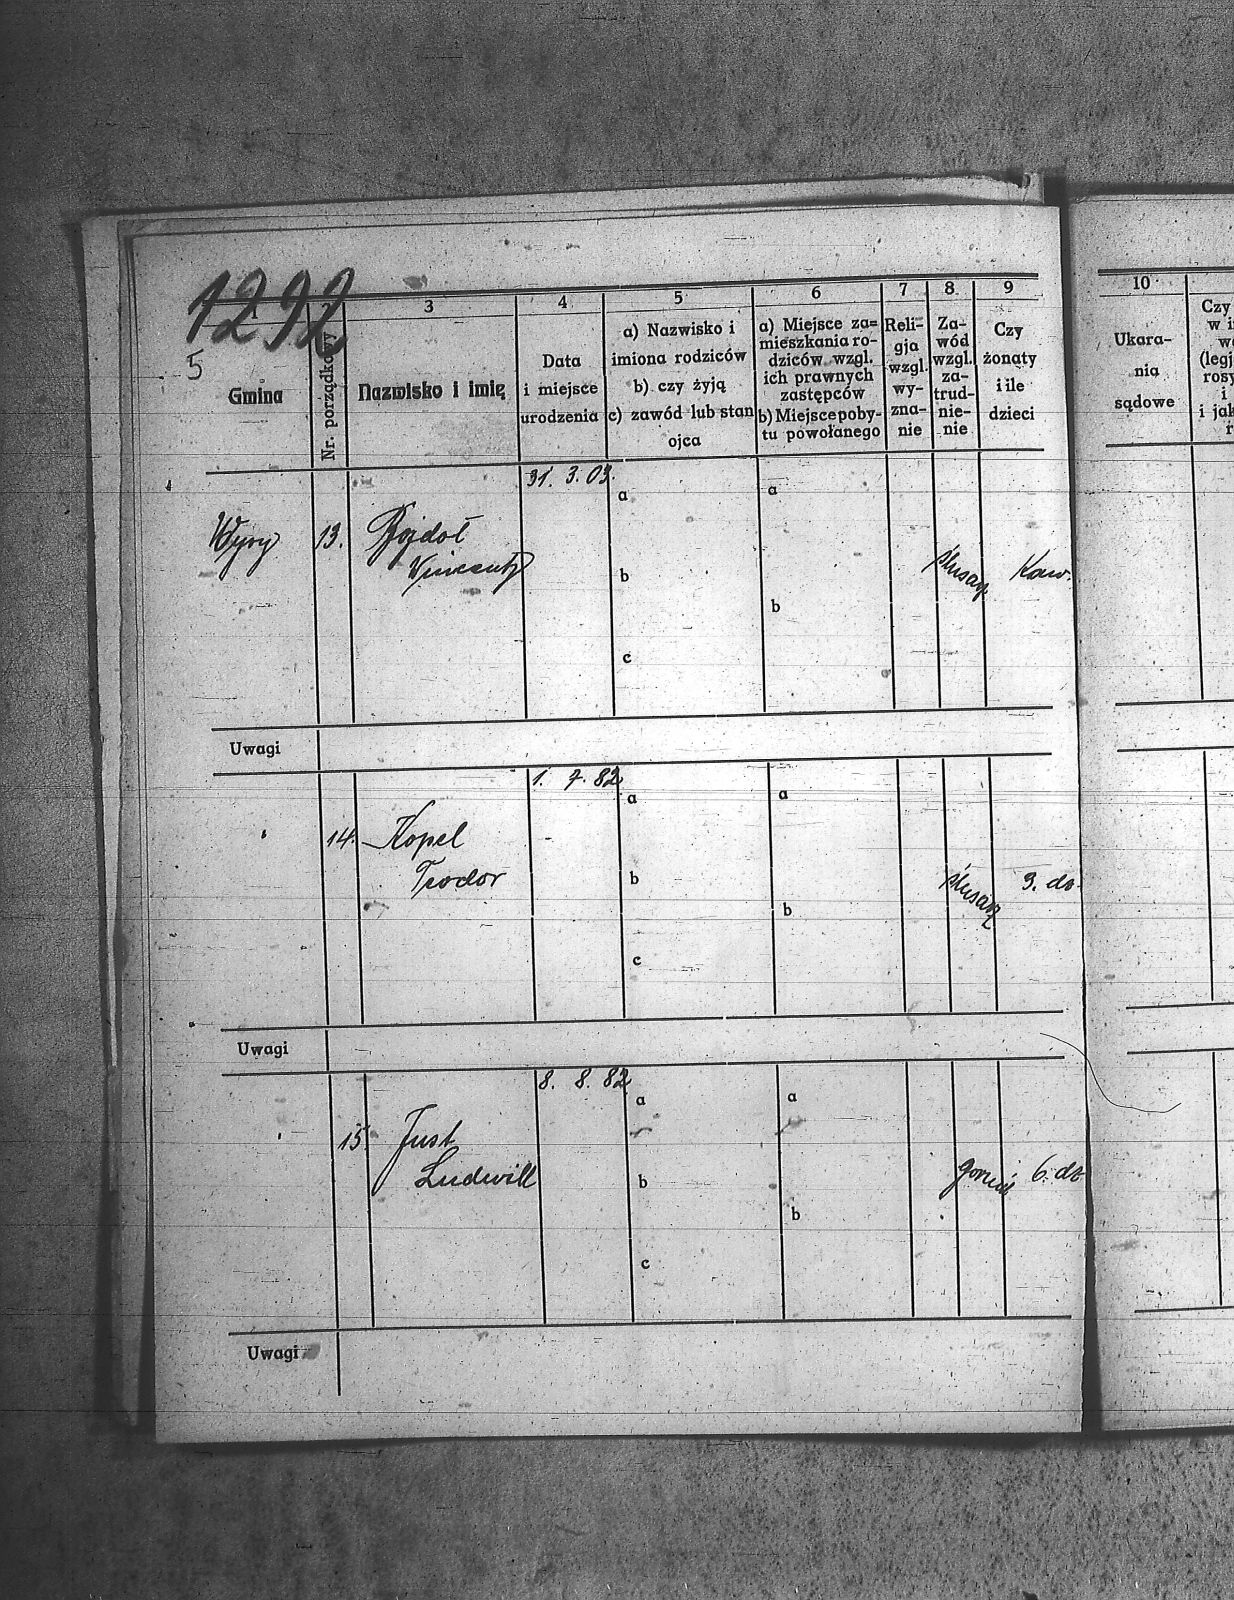 1292
5
1
2
3
4
5
6
7
8
9
Gmina
Nr. porządkowy
Nazwisko i imię
Data
i miejsce
urodzenia
a) Nazwisko i
imiona rodziców
b) czy żyją
c) zawód lub stan
ojca
a) Miejsce za=
mieszkania ro-
dziców wzgl.
ich prawnych
zastępców
b) Miejsce poby-
tu powołanego
Reli-
gja
wzgl.
wy-
zna-
nie
Za-
wód
wzgl.
za-
trud-
nie-
nie
Czy
żonaty
i ile
dzieci
10
Ukara-
nia
sądowe
Czy
w i
w
(legj
rosy
i
i jak
r
31. 3. 03.
a
a
Wyry 13. Bojdoł
Wincenty
b
ślusarz Kaw.
b
c
Uwagi
1. 7. 82
a
a
14. Kopel
Teodor
b
ślusarz 3. dz.
b
c
Uwagi
8. 8. 82
a
a
15. Just
Ludwik
b
górnik 6. dz
b
c
Uwagi